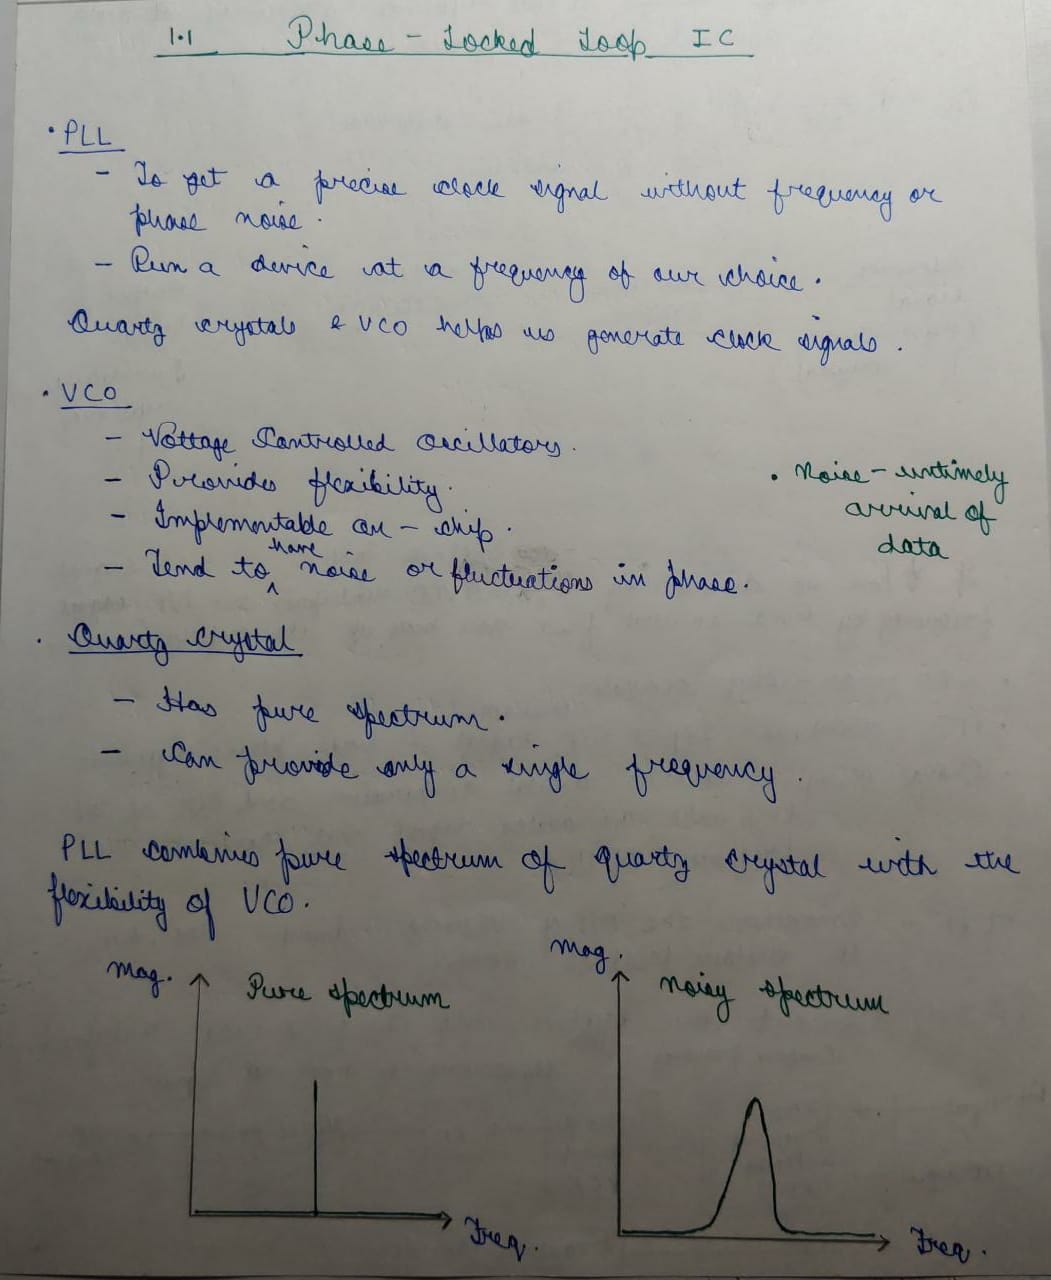 1.1 Phase - Locked Loop IC
• PLL
- To get a precise clock signal without frequency or
phase noise.
- Run a device at a frequency of our choice.
Quartz crystals & VCO helps us generate clock signals.
• VCO
- Voltage Controlled Oscillators.
- Provides flexibility.
- Implementable on - chip.
- Tend to have noise or fluctuations in phase.
• Noise - untimely
arrival of
data
• Quartz crystal
- Has pure spectrum.
- Can provide only a single frequency.
PLL combines pure spectrum of quartz crystal with the
flexibility of VCO.
Mag. Pure spectrum
Freq.
Mag. Noisy spectrum
Freq.